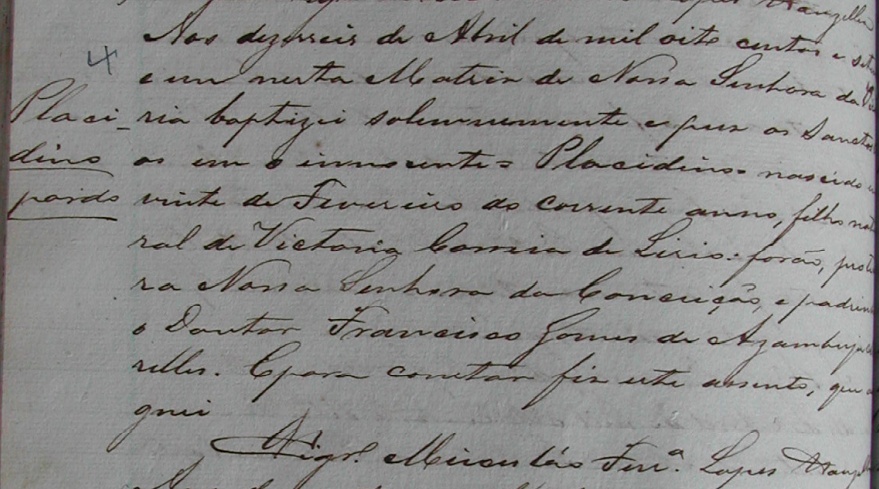 4
Placi-
dino
pardo
Aos dezesseis de Abril de mil oito centos e
e um nesta Matriz de Nossa Senhora da
ria baptizei solemnemente e puz os Sanctos
os em o innocente = Placidino = nascido
vinte de Fevereiro do corrente anno, filho natu
ral de Victoria Correia de Lirio: forão, prote
ra Nossa Senhora da Conceição, e padrinho
o Doutor Francisco Gomes de Azambuja
relles. E para constar fiz este assento, que
gnei
Vigr.º Fer.ª Lopes